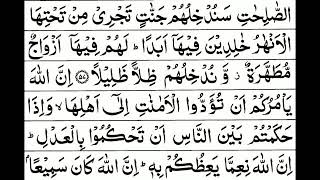 الصّٰلِحٰتِ سَنُدْخِلُهُمْ جَنّٰتٍ تَجْرِیْ مِنْ تَحْتِهَا
الْاَنْهٰرُ خٰلِدِیْنَ فِیْهَاۤ اَبَدًا ؕ لَهُمْ فِیْهَاۤ اَزْوَاجٌ
مُّطَهَّرَةٌ ؗ وَّ نُدْخِلُهُمْ ظِلًّا ظَلِیْلًا ﴿۵۷﴾ اِنَّ اللّٰهَ
یَاْمُرُكُمْ اَنْ تُؤَدُّوا الْاَمٰنٰتِ اِلٰۤی اَهْلِهَا ۙ وَاِذَا
حَكَمْتُمْ بَیْنَ النَّاسِ اَنْ تَحْكُمُوْا بِالْعَدْلِ ؕ
اِنَّ اللّٰهَ نِعِمَّا یَعِظُكُمْ بِهٖ ؕ اِنَّ اللّٰهَ كَانَ سَمِیْعًۢا